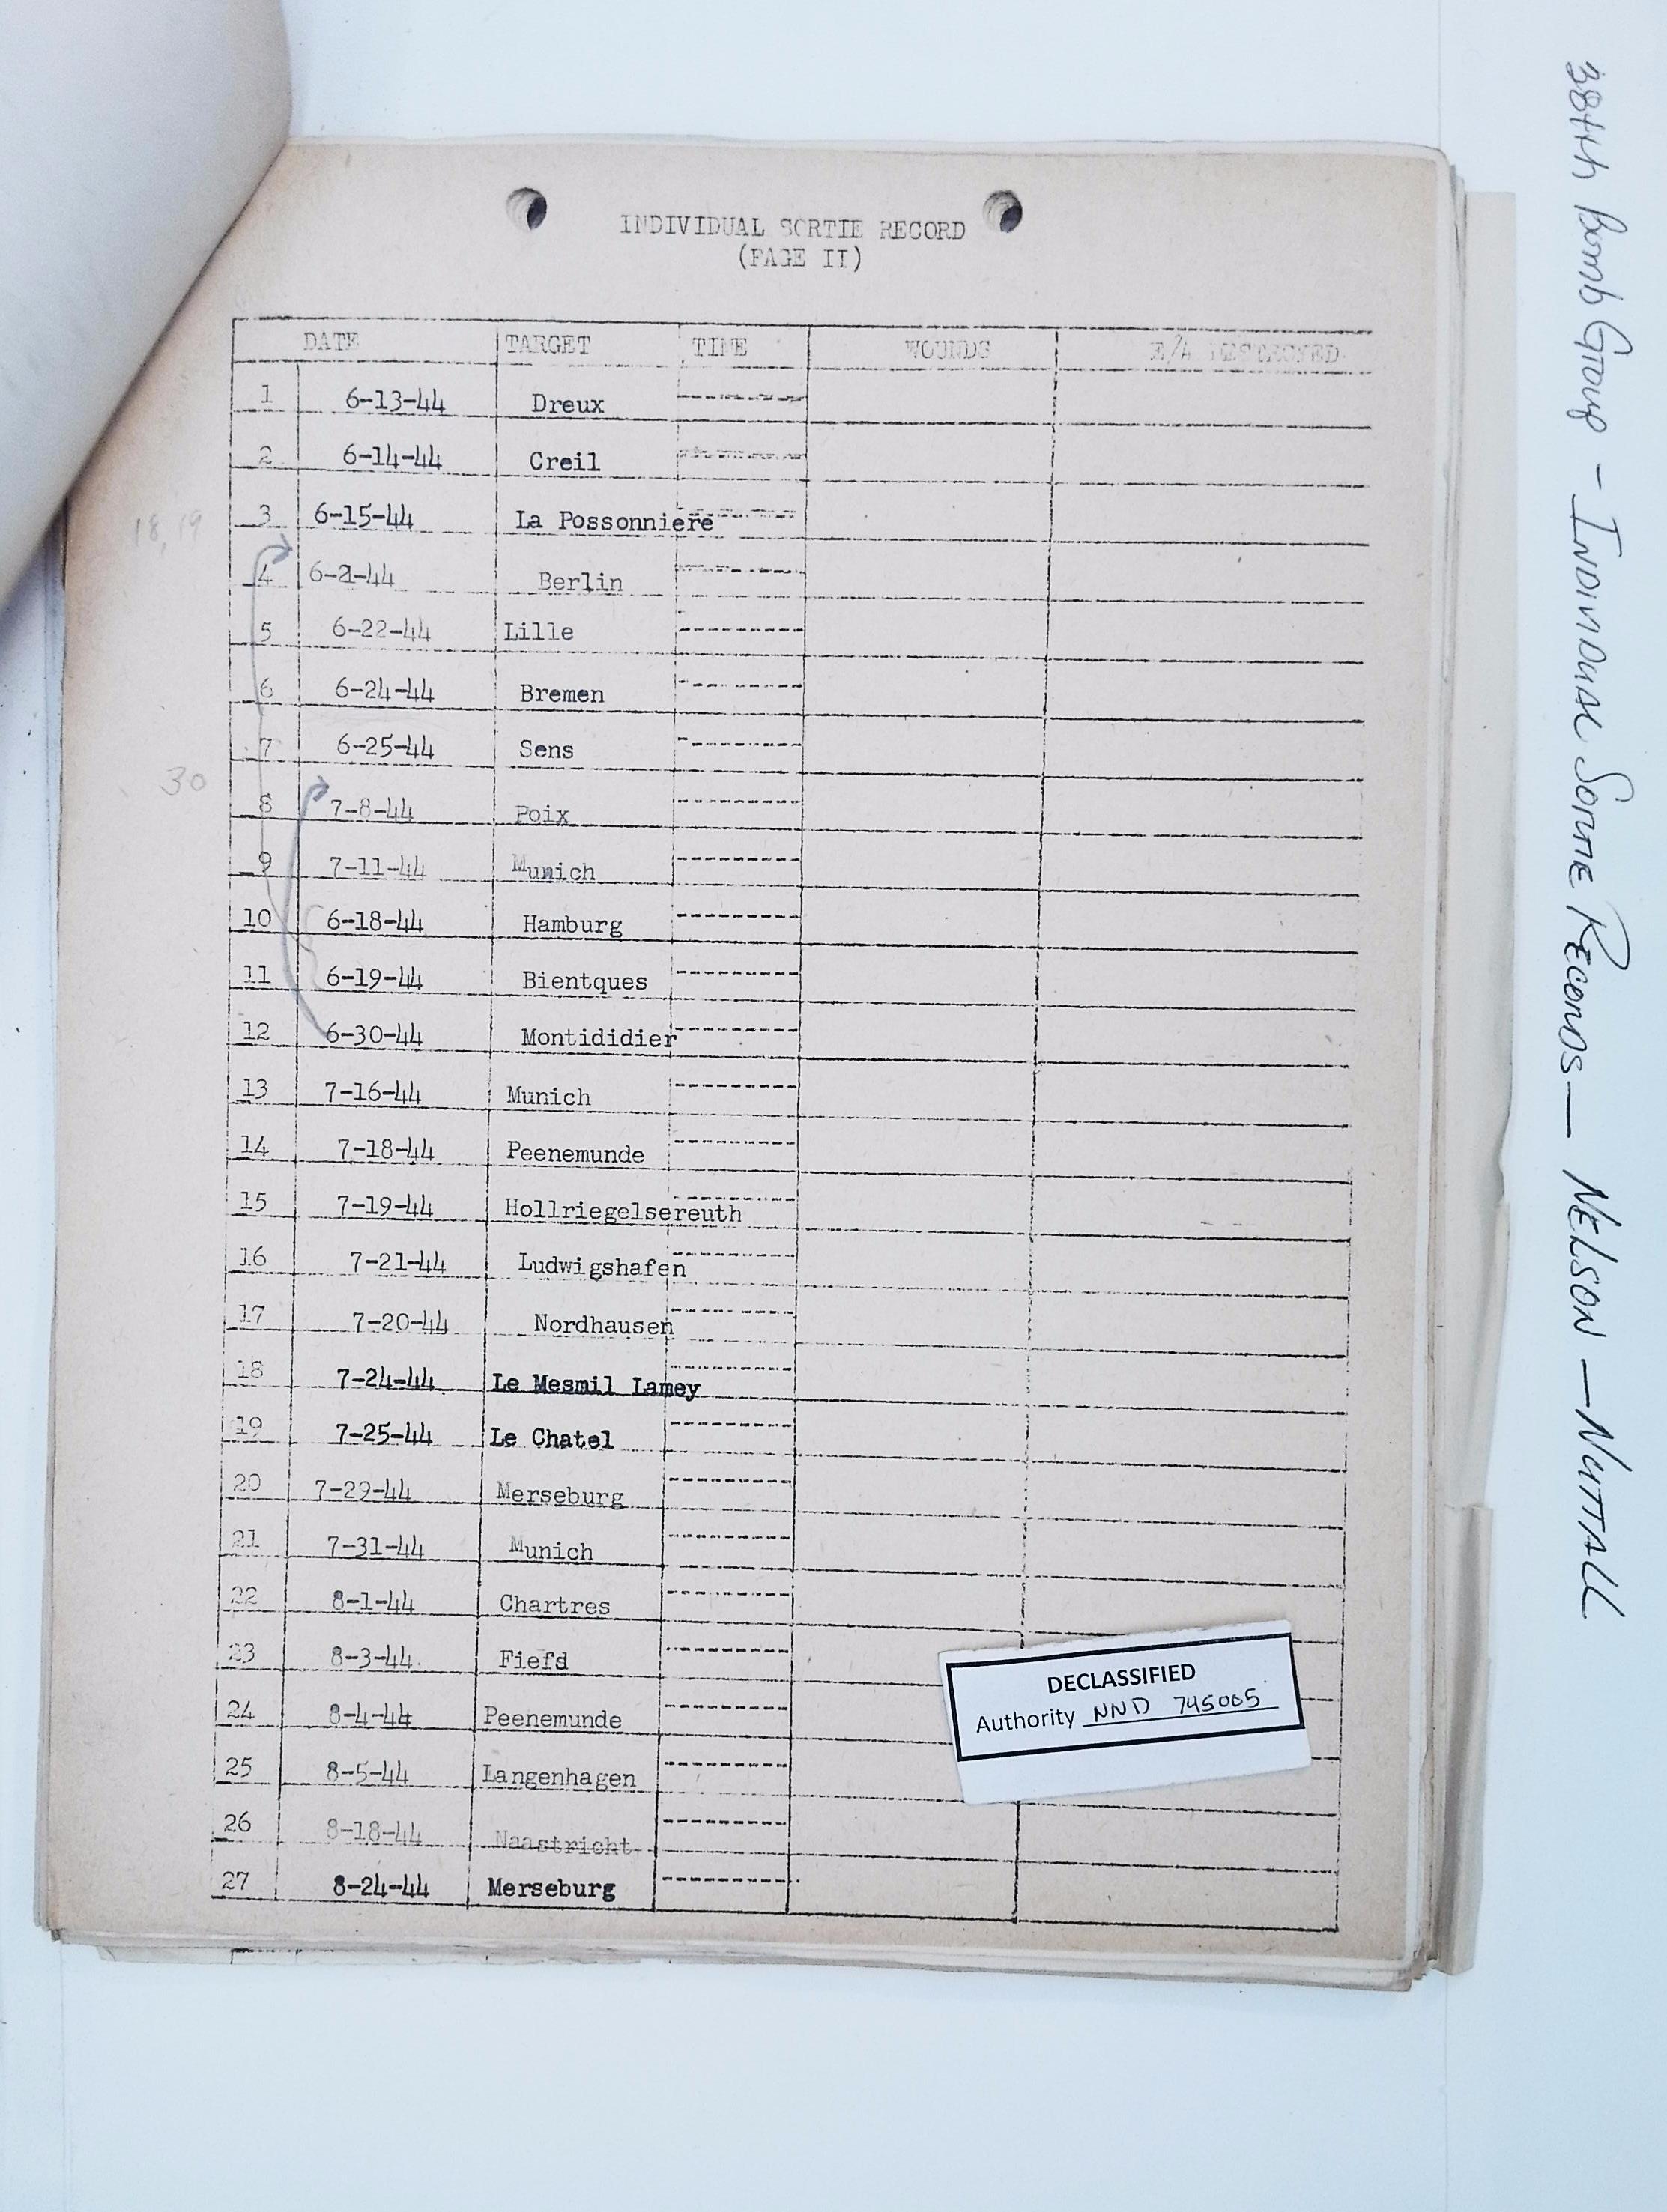 INDIVIDUAL SORTIE RECORD
(PAGE II)
DATE TARGET TIME WOUNDS E/A DESTROYED
1 6-13-44 Dreux
2 6-14-44 Creil
3 6-15-44 La Possonniere
18, 19
4 6-2-44 Berlin
5 6-22-44 Lille
6 6-24-44 Bremen
7 6-25-44 Sens
30
8 7-8-44 Poix
9 7-11-44 Munich
10 6-18-44 Hamburg
11 6-19-44 Bientques
12 6-30-44 Montididier
13 7-16-44 Munich
14 7-18-44 Peenemunde
15 7-19-44 Hollriegelsereuth
16 7-21-44 Ludwigshafen
17 7-20-44 Nordhausen
18 7-24-44 Le Mesmil Lamey
19 7-25-44 Le Chatel
20 7-29-44 Merseburg
21 7-31-44 Munich
22 8-1-44 Chartres
23 8-3-44 Fiefd
24 8-4-44 Peenemunde
25 8-5-44 Langenhagen
26 8-18-44 Naastricht
27 8-24-44 Merseburg
DECLASSIFIED
Authority NND 745005
384th Bomb Group - Individual Sortie Records — Nelson — Nuttall